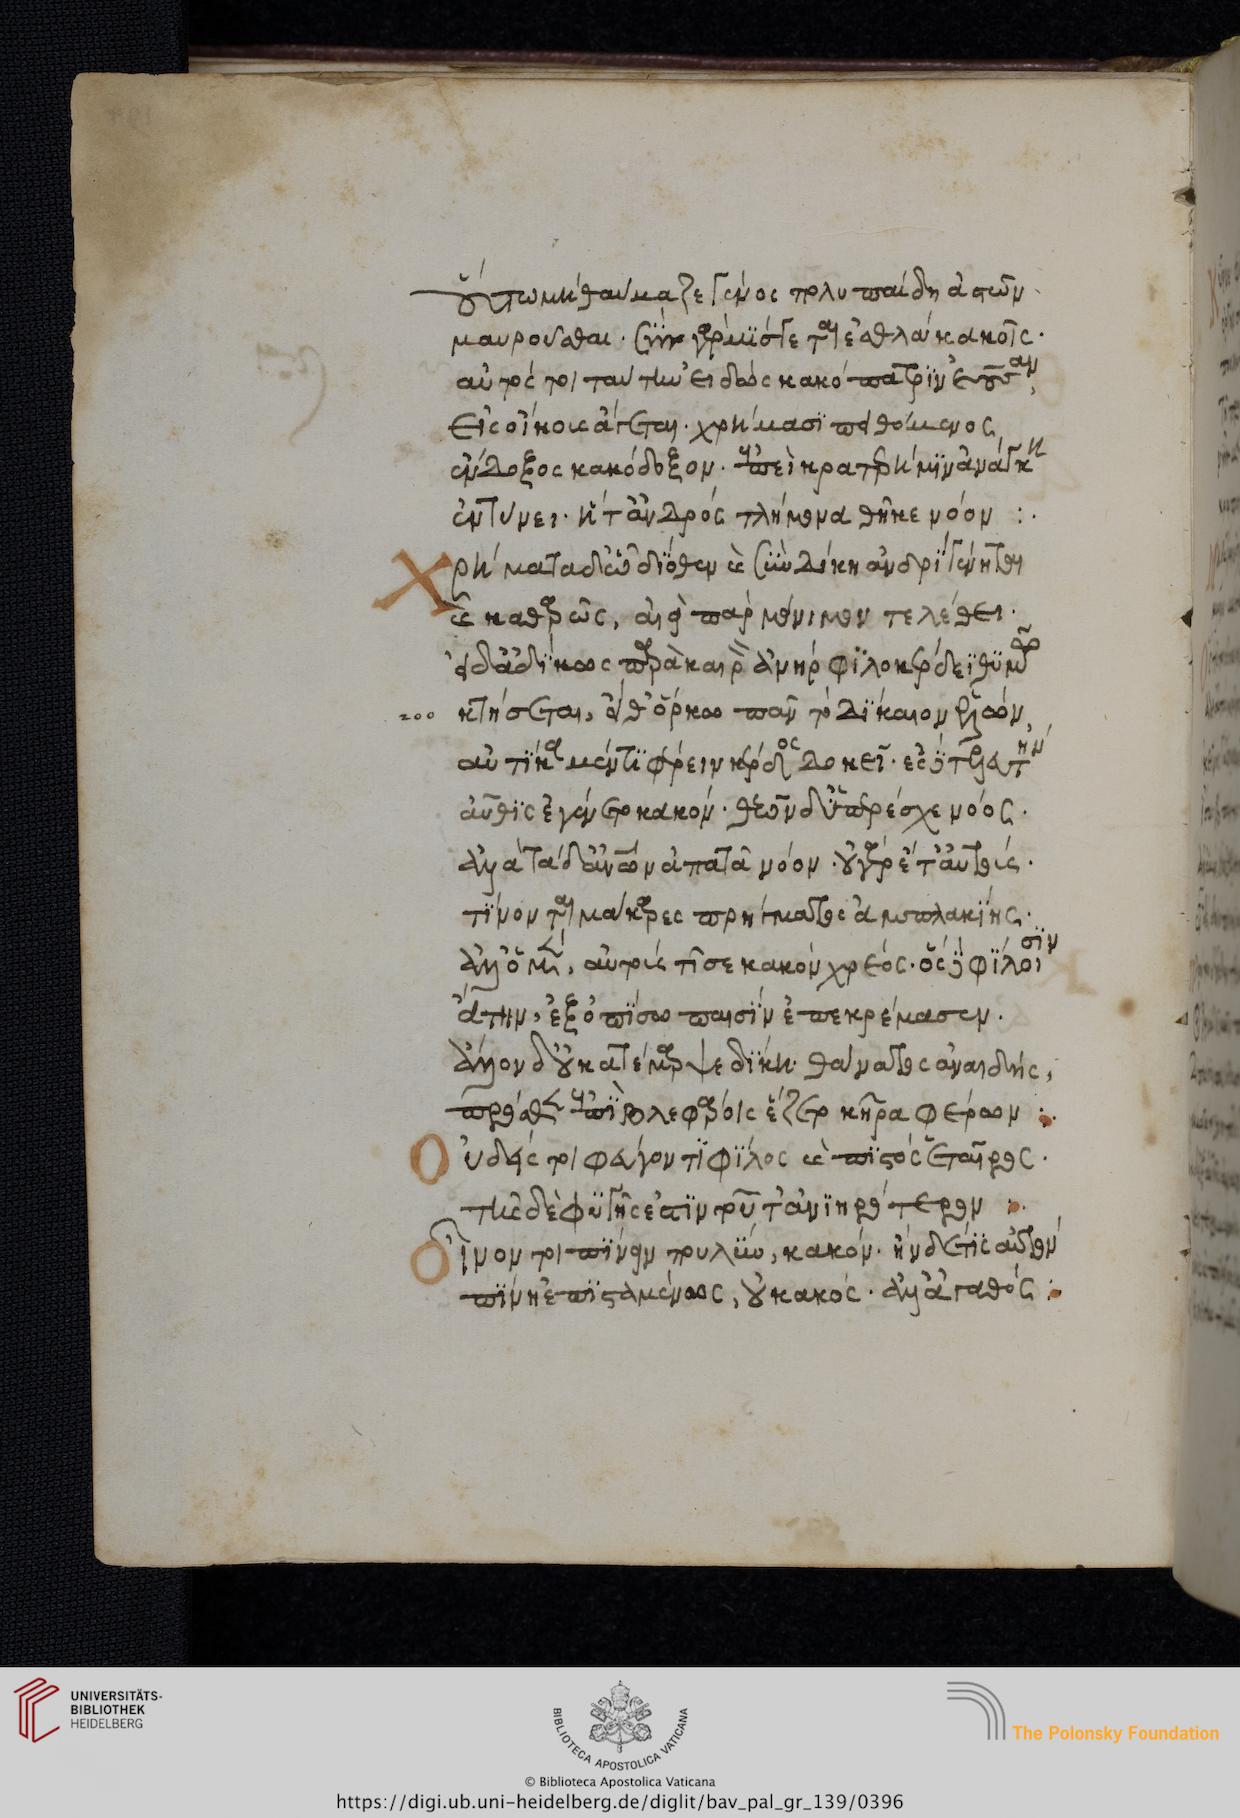 οὕτω μὴ θαύμαζε γένος πολυπαίδη ἀστῶν
μαυροῦσθαι. σὺν γὰρ μίσγεται ἐσθλὰ κακοῖς.
αὐτός τοι ταύτην εἰδὼς κακόπατριν ἐοῦσαν,
εἰς οἴκους ἄγεται. χρήμασι πειθόμενος,
ἔνδοξος κακόδοξον. ἐπεὶ κρατερή μιν ἀνάγκη
ἐντύνει. ἥτ' ἀνδρὸς τλήμονα θῆκε νόον :.
Χρήματα δ' ᾧ διόθεν καὶ σὺν δίκη ἀνδρὶ γένηται
καὶ καθαρῶς, αἰεὶ παρμόνιμον τελέθει.
εἰ δ' ἀδίκως παρὰ καιρὸν ἀνὴρ φιλοκερδέϊ θυμῷ
200 κτήσεται, εἴθ' ὅρκω παρ τὸ δίκαιον ἑλών,
αὐτίκα μέν τι φέρειν κέρδος δοκεῖ. ἐς δὲ τελευτὴν
αὖθις ἐγένετο κακόν. θεῶν δ' ὑπερέσχε νόος.
ἀλλὰ τάδ' ἀνθρώπων ἀπατᾶ νόον. οὐ γὰρ ἔτ' αὐτοὺς.
τίνονται μάκαρες πρήγματος ἀμπλακίης.
ἀλλ' ὁ μὲν, αὐτὸς τῖσε κακὸν χρέος. οὐδὲ φίλοισιν
ἄτην, ἐξοπίσω παισὶν ἐπεκρέμασεν.
ἄλλον δ' οὐ κατέμαρψε δίκη. θάνατος ἀναιδής,
πρόσθεν ἐπὶ βλεφάροις ἕζετο κῆρα φέρων :.
Οὐδείς τοι φεύγοντι φίλος καὶ πιστὸς ἑταῖρος.
τῆς δὲ φυγῆς ἐστὶν τοῦτ' ἀνιηρότερον :.
Οἶνόν τοι πίνειν πουλὺν, κακόν. ἢν δέ τις αὐτὸν
πίνη ἐπισταμένως, οὐ κακός. ἀλλ' ἀγαθός :
UNIVERSITÄTS-
BIBLIOTHEK
HEIDELBERG
BIBLIOTECA APOSTOLICA VATICANA
The Polonsky Foundation
© Biblioteca Apostolica Vaticana
https://digi.ub.uni-heidelberg.de/diglit/bav_pal_gr_139/0396